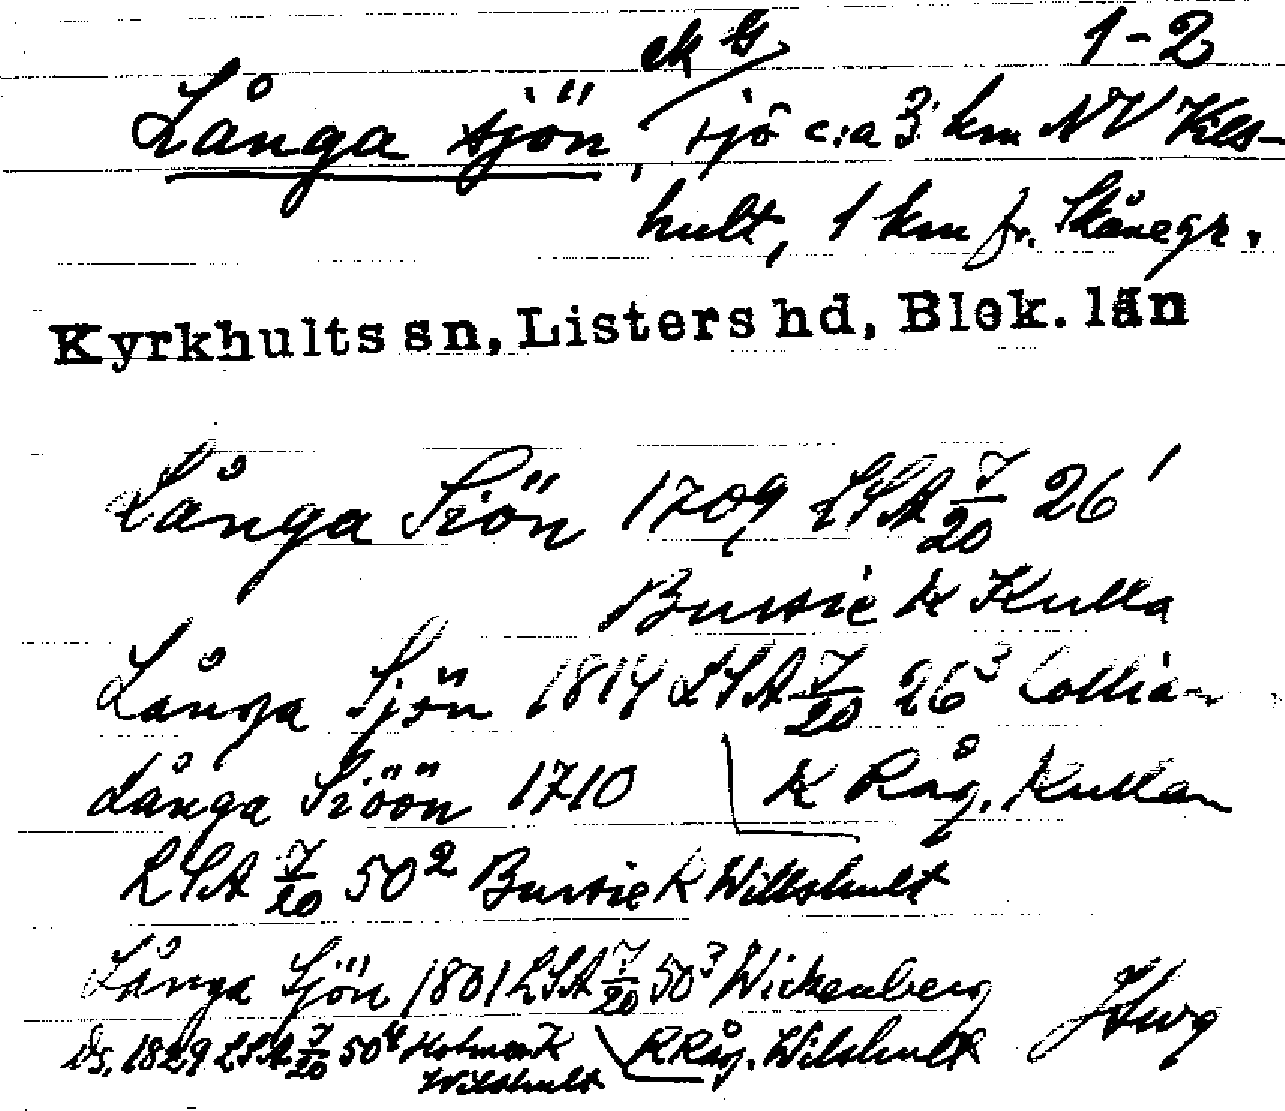 ek G 1-2
Långa sjön, sjö c:a 3 km NV Kils-
hult, 1 km fr. Skånegr.
Kyrkhults sn, Listers hd, Blek. län
Långa Siön 1709 LSA 7/20 26¹
Bussie K Kulla
Långa Sjön 1814 LSA 7/20 26³ Collian
Långa Siöön 1710 K Råg. Kullan
LSA 7/20 50² Bussie K Willshult
Långa Sjön 1801 LSA 7/20 50³ Wickenberg
Ds. 1829 LSA 7/20 50⁴ Holm K R Råg. Wilshult
Wilshult